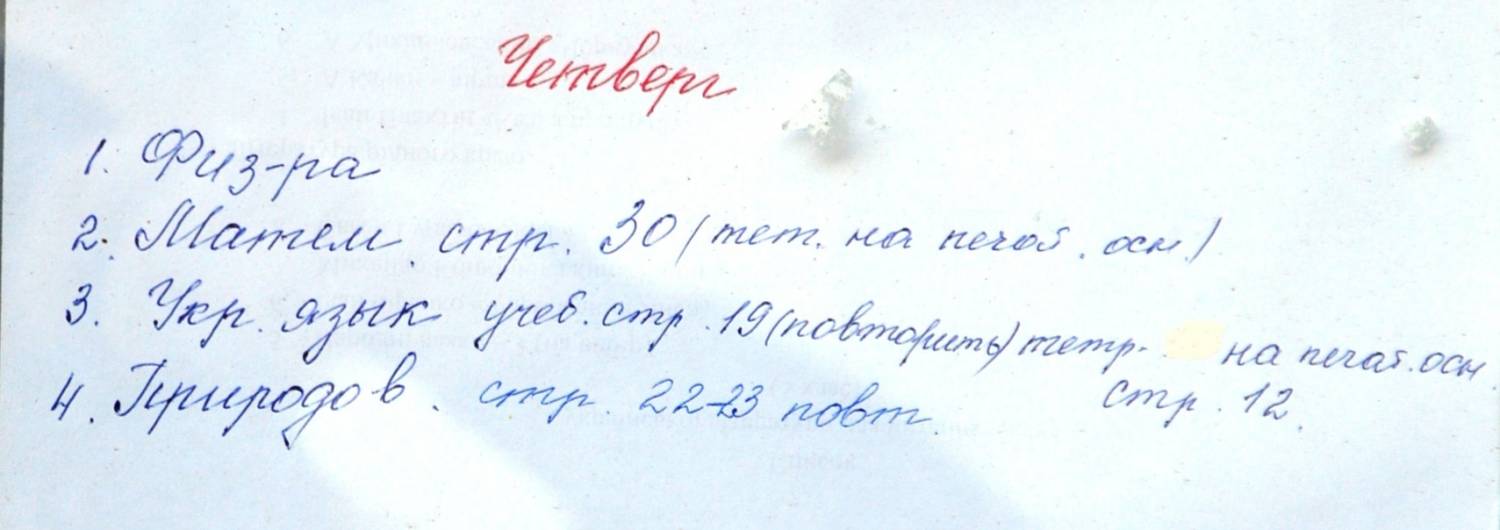 Четверг
1. Физ-ра
2. Матем стр. 30 (тет. на печат. осн.)
3. Укр. язык учеб. стр. 19 (повторить) тетр. на печат. осн.
стр. 12.
4. Природов. стр. 22-23 повт.